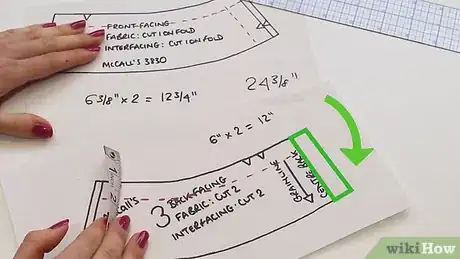 FRONT FACING
FABRIC: CUT ON FOLD
INTERFACING: CUT ON FOLD
McCALL'S 3830
6 3/8" x 2 = 12 3/4"
24 3/8"
6" x 2 = 12"
CENTRE BACK
GRAINLINE
McCall's
3
BACK FACING
FABRIC: CUT 2
INTERFACING: CUT 2
wikiHow